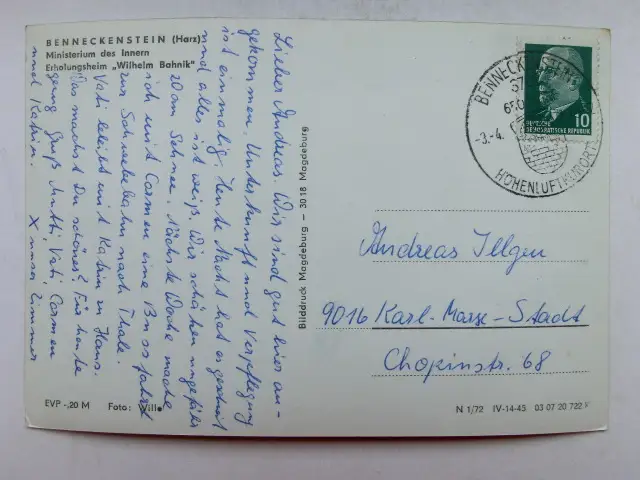 BENNECKENSTEIN (Harz)
Ministerium des Innern
Erholungsheim „Wilhelm Bahnik“
Lieber Andreas, Wir sind gut hier an-
gekommen. Unterkunft und Verpflegung
ist einmalig. Heute Nacht hat es geschneit
und alles ist weiß. Wir schätzen ungefähr
20 cm Schnee. Nächste Woche mache
ich mit Carmen eine Busfahrt
zur Schwebebahn nach Thale.
Vati bleibt mit Katrin zu Haus.
Was machst Du schönes? Für heute
genug Gruß Mutti, Vati, Carmen
und Katrin. X unser Zimmer
Bilddruck Magdeburg — 3018 Magdeburg
BENNECKENSTEIN
-3.-4.
HÖHENLUFTKURORT
10
DEUTSCHE
DEMOKRATISCHE REPUBLIK
Andreas Illgen
9016 Karl-Marx-Stadt
Chopinstr. 68
EVP -,20 M Foto: Wille
N 1/72 IV-14-45 03 07 20 722 Y